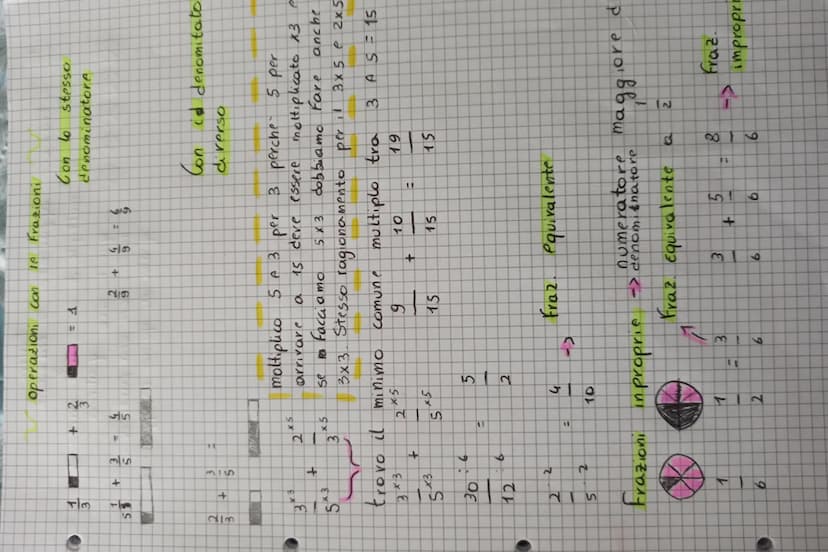 operazioni con le Frazioni
1/3 + 2/3 = 1
Con lo stesso
denominatore
1/5 + 3/5 = 4/5
2/9 + 4/9 = 6/9
Con denomitato
diverso
2/3 + 3/5 =
moltiplico 5 e 3 per 3 perché 5 per
arrivare a 15 deve essere moltiplicato x3 e
se facciamo 5x3 dobbiamo fare anche
3x3. Stesso ragionamento per il 3x5 e 2x5
3 x3 / 5 x3 + 2 x5 / 3 x5
trovo il minimo comune multiplo tra 3 A 5 = 15
3 x3 / 5 x3 + 2 x5 / 5 x5 9/15 + 10/15 = 19/15
30 :6 / 12 :6 = 5/2
2 ·2 / 5 ·2 = 4/10 -> Fraz. equivalente
Frazioni inproprie -> numeratore maggiore d
denominatore
Fraz. equivalente a 1/2
1/6 1/2 = 3/6 3/6 + 5/6 = 8/6 -> Fraz.
impropri